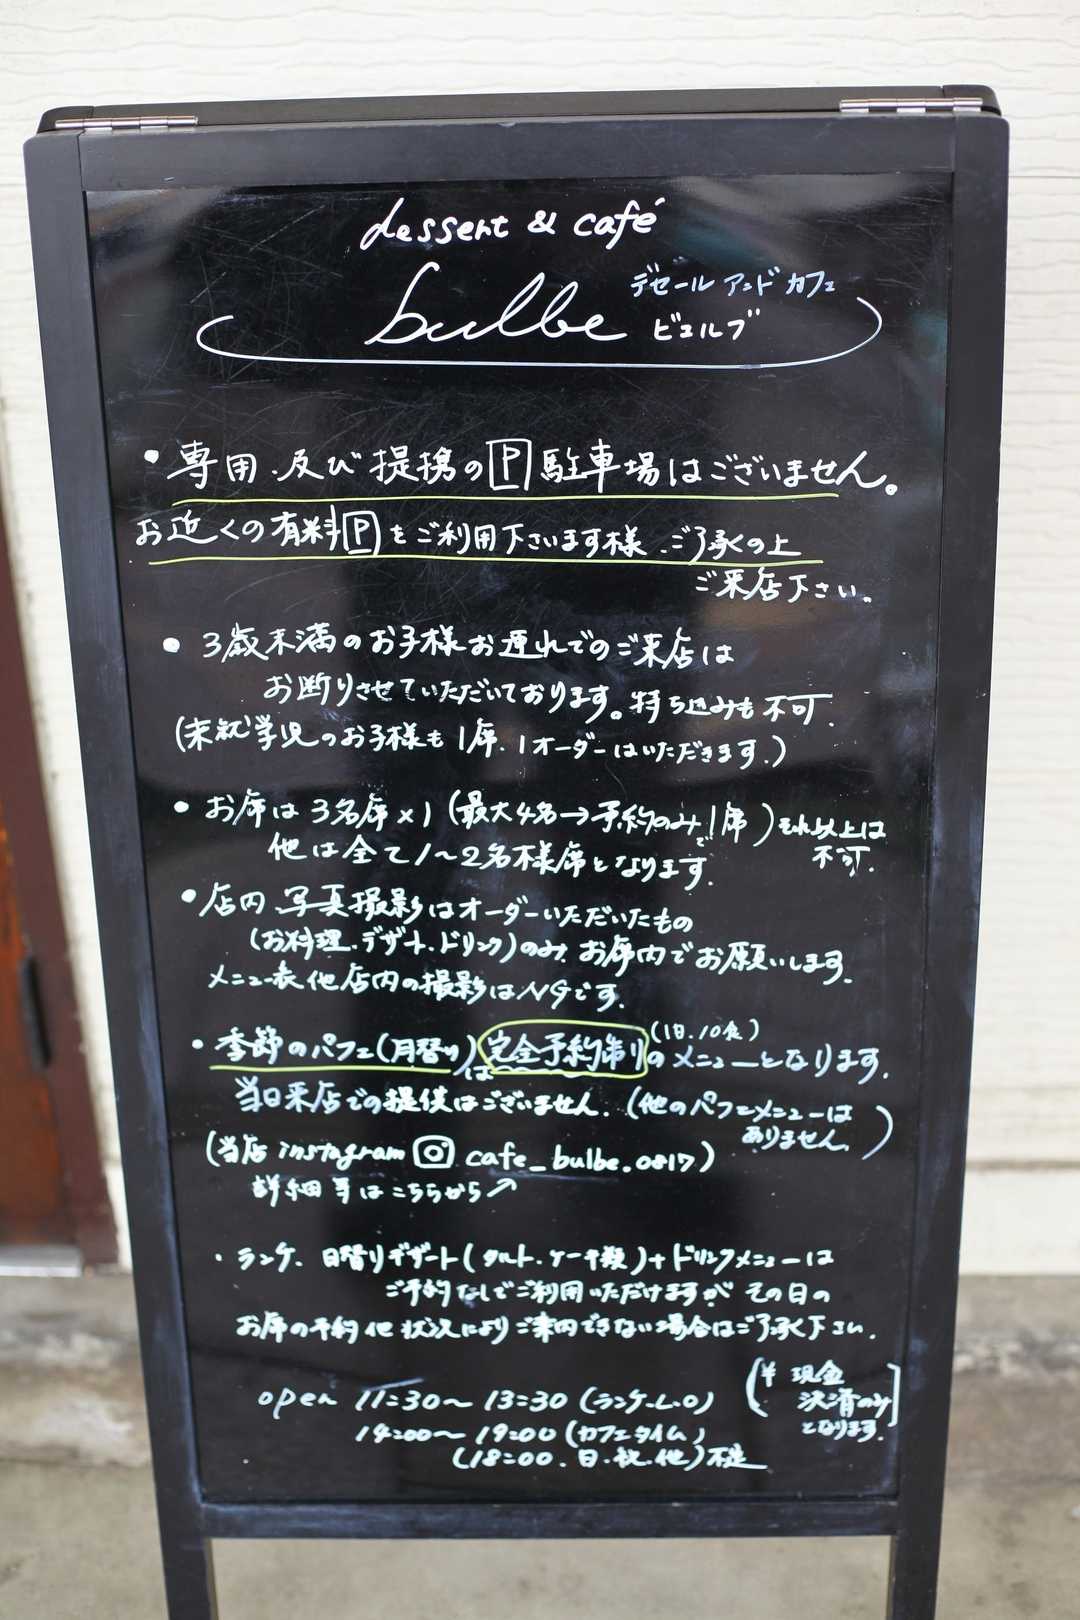 dessert & café
デセール アンド カフェ
bulbe ビュルブ
・専用、及び提携の P 駐車場はございません。
お近くの有料 P をご利用下さいます様、ご了承の上
ご来店下さい。
・3歳未満のお子様お連れでのご来店は
お断りさせていただいております。持ち込みも不可.
(未就学児のお子様も1席、1オーダーはいただきます。)
・お席は3名席×1(最大4名→予約のみで1席)それ以上は不可.
他は全て1〜2名様席となります.
・店内写真撮影はオーダーいただいたもの
(お料理、デザート、ドリンク)のみ、お席内でお願いします.
メニュー表他店内の撮影はNGです.
・季節のパフェ(月替り)は完全予約制(1日、10食)のメニューとなります.
当日来店での提供はございません. (他のパフェメニューはありません.)
(当店instagram cafe_bulbe.0817)
詳細等はこちらから↗
・ランチ、日替りデザート(タルト、ケーキ類)+ドリンクメニューは
ご予約なしでご利用いただけますが その日の
お席の予約他状況によりご案内できない場合はご了承下さい.
open 11:30〜13:30(ランチL.O)
14:00〜19:00(カフェタイム)
(18:00、日、祝、他)不定
(¥ 現金
決済のみ
となります.)